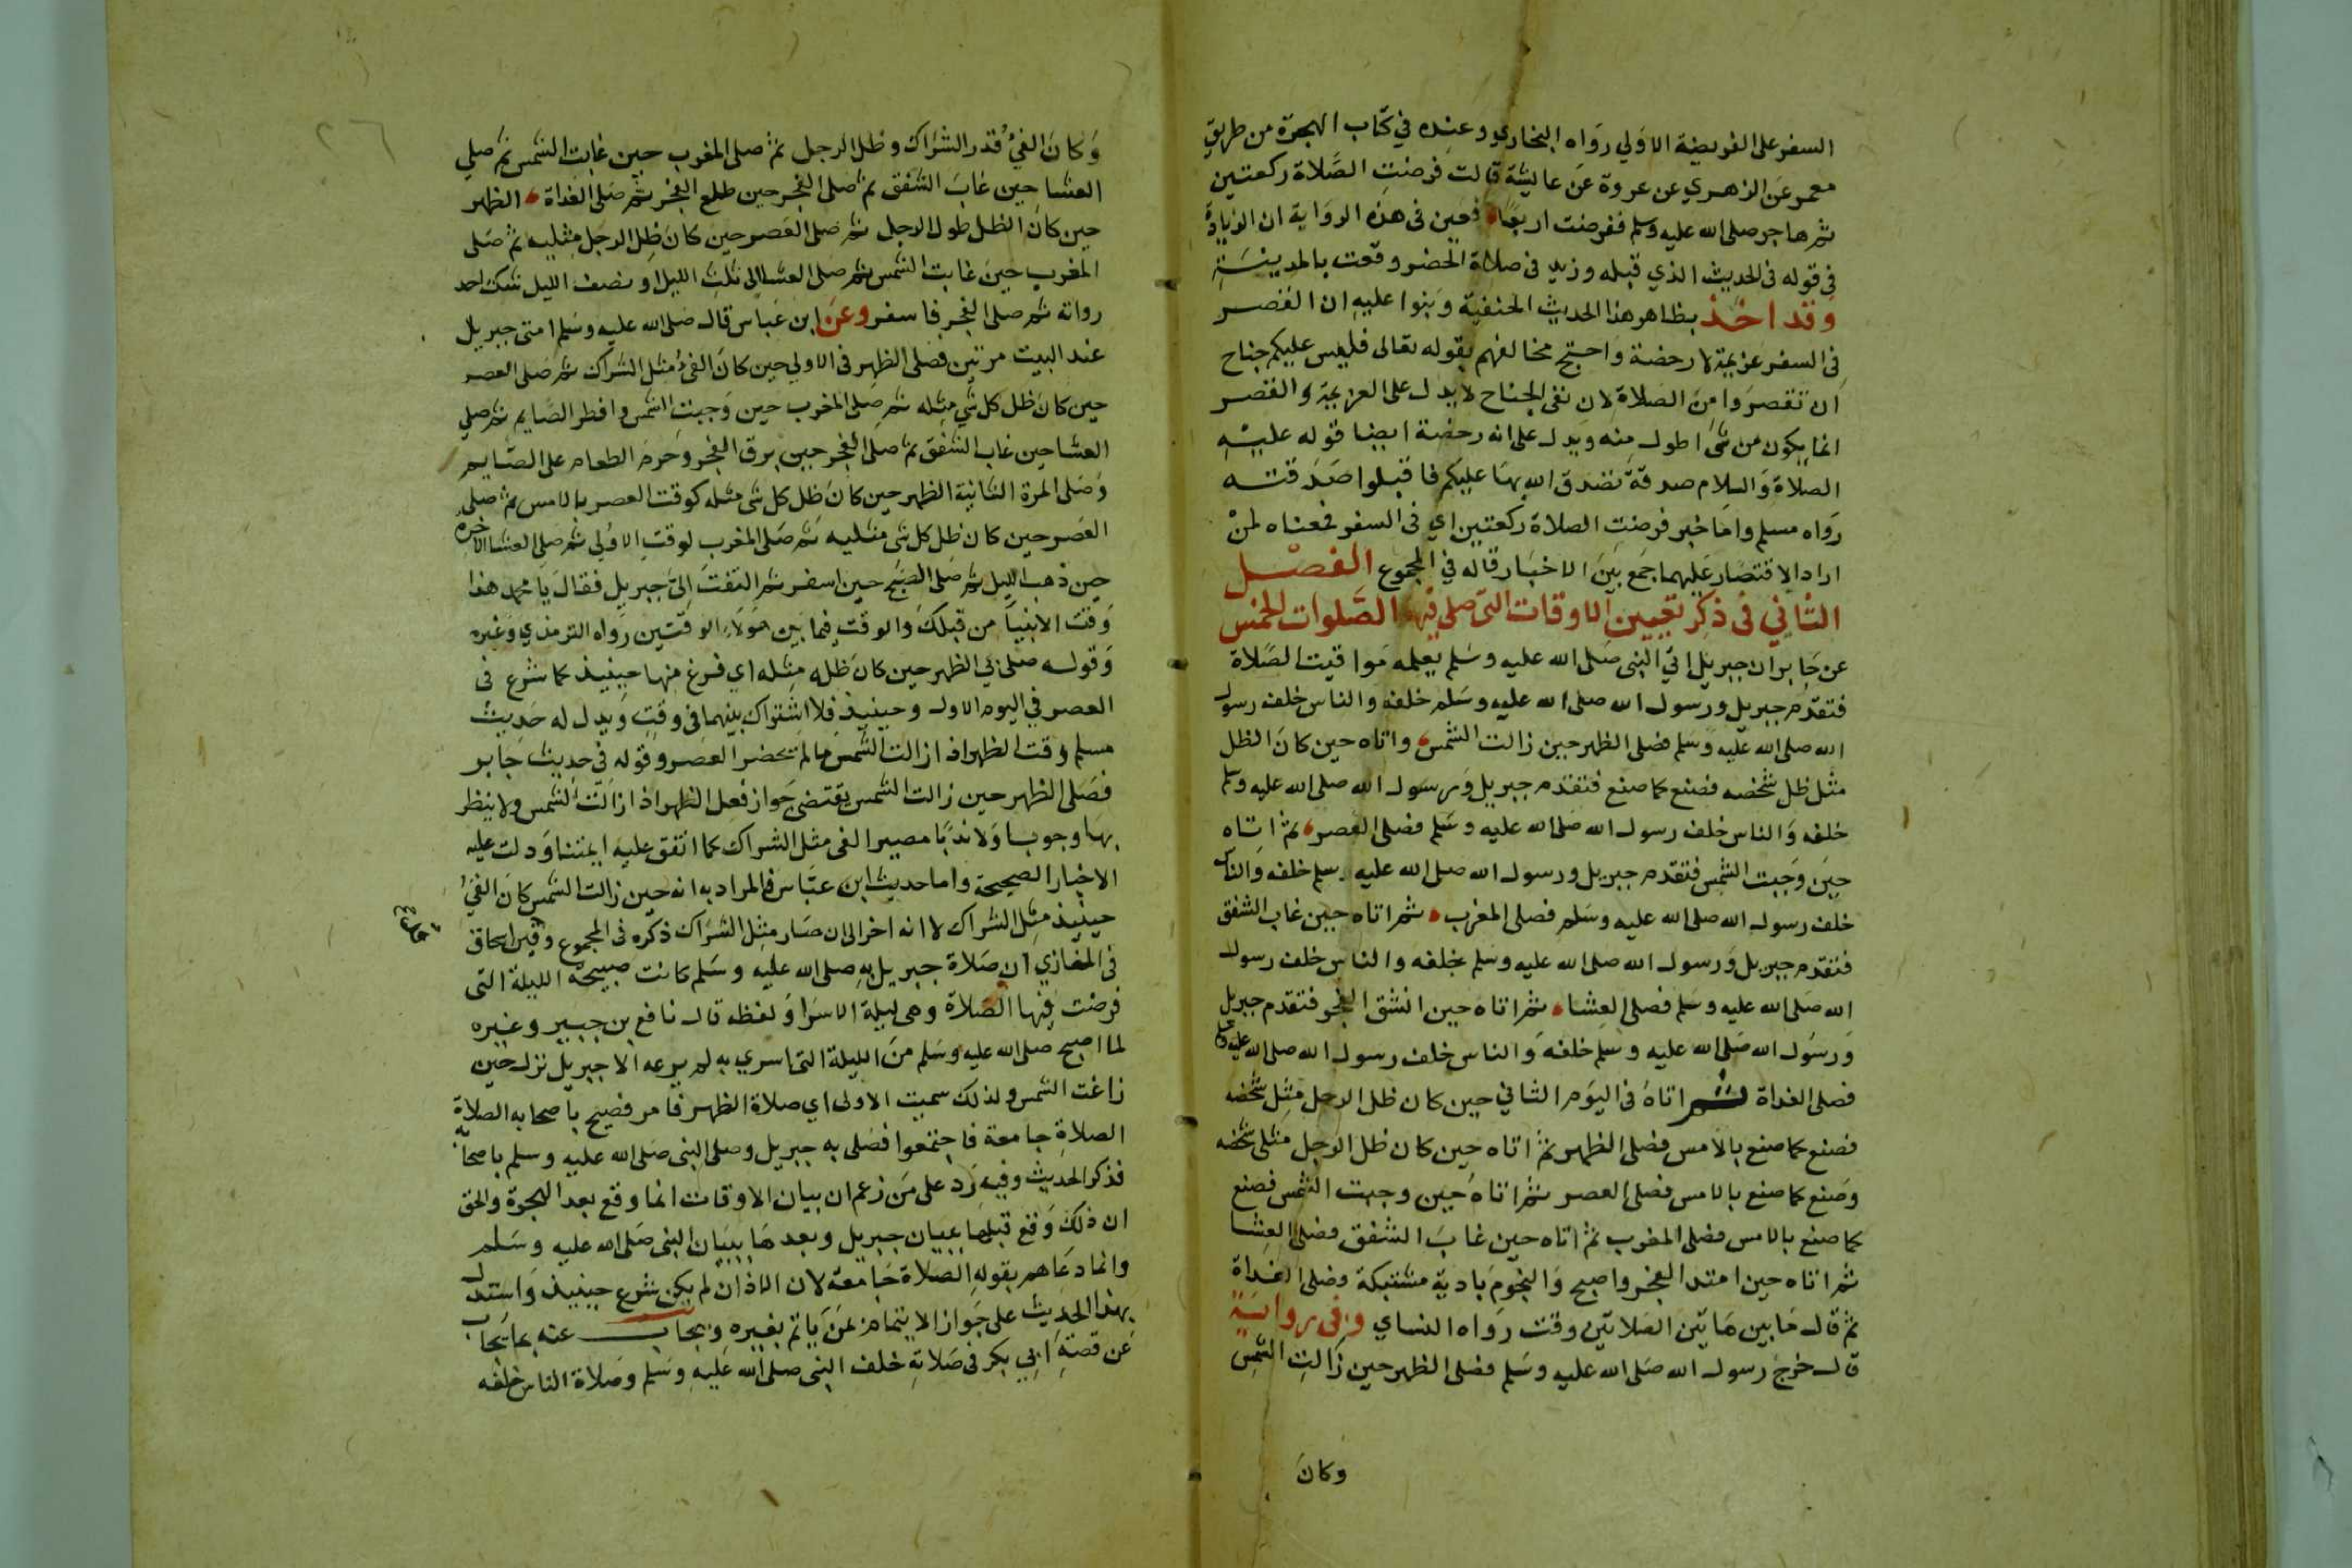 السفر على الفريضة الاولي رواه البخاري وعنده في كتاب الهجرة من طريق
معمر عن الزهري عن عروة عن عايشة قالت فرضت الصلاة ركعتين
ثم هاجر صلى الله عليه وسلم ففرضت اربعا فعين في هذه الرواية ان الزيادة
في قوله في الحديث الذي قبله وزيد في صلاة الحضر وقعت بالمدينة
وقد اخذ بظاهر هذا الحديث الحنفية وبنوا عليه ان القصر
في السفر عزيمة لا رخصة واحتج مخالفهم بقوله تعالى فليس عليكم جناح
ان تقصروا من الصلاة لان نفي الجناح لا يدل على العزيمة والقصر
انما يكون من شي اطول منه ويدل على انه رخصة ايضا قوله عليه
الصلاة والسلام صدقة تصدق الله بها عليكم فاقبلوا صدقته
رواه مسلم واما خبر فرضت الصلاة ركعتين اي في السفر فمعناه لمن
اراد الاقتصار عليهما جمع بين الاخبار قاله في المجموع الفصل
الثاني في ذكر تعيين الاوقات التي صلى فيها الصلوات الخمس
عن جابر ان جبريل اتي النبي صلى الله عليه وسلم يعلمه مواقيت الصلاة
فتقدم جبريل ورسول الله صلى الله عليه وسلم خلفه والناس خلف رسول
الله صلى الله عليه وسلم فصلى الظهر حين زالت الشمس واتاه حين كان الظل
مثل ظل شخصه فصنع كما صنع فتقدم جبريل ورسول الله صلى الله عليه وسلم
خلفه والناس خلف رسول الله صلى الله عليه وسلم فصلى العصر ثم اتاه
حين وجبت الشمس فتقدم جبريل ورسول الله صلى الله عليه وسلم خلفه والناس
خلف رسول الله صلى الله عليه وسلم فصلى المغرب ثم اتاه حين غاب الشفق
فتقدم جبريل ورسول الله صلى الله عليه وسلم خلفه والناس خلف رسول
الله صلى الله عليه وسلم فصلى العشاء ثم اتاه حين انشق الفجر فتقدم جبريل
ورسول الله صلى الله عليه وسلم خلفه والناس خلف رسول الله صلى الله عليه وسلم
فصلى الغداة ثم اتاه في اليوم الثاني حين كان ظل الرجل مثل شخصه
فصنع كما صنع بالامس فصلى الظهر ثم اتاه حين كان ظل الرجل مثلي شخصه
وصنع كما صنع بالامس فصلى العصر ثم اتاه حين وجبت الشمس فصنع
كما صنع بالامس فصلى المغرب ثم اتاه حين غاب الشفق فصلى العشا
ثم اتاه حين امتد الفجر واصبح والنجوم بادية مشتبكة وصلى الغداة
ثم قال ما بين هاتين الصلاتين وقت رواه النساي وفي رواية
قال خرج رسول الله صلى الله عليه وسلم فصلى الظهر حين زالت الشمس
وكان
وكان الفيء قدر الشراك وظل الرجل ثم صلى المغرب حين غابت الشمس ثم صلي
العشا حين غاب الشفق ثم صلى الفجر حين طلع الفجر ثم صلى الغداة الظهر
حين كان الظل طول الرجل ثم صلى العصر حين كان ظل الرجل مثليه ثم صلى
المغرب حين غابت الشمس ثم صلى العشا الى ثلث الليل او نصف الليل شك احد
رواته ثم صلى الفجر فاسفر وعن ابن عباس قال صلى الله عليه وسلم امني جبريل
عند البيت مرتين فصلى الظهر في الاولي حين كان الفيء مثل الشراك ثم صلى العصر
حين كان ظل كل شي مثله ثم صلى المغرب حين وجبت الشمس وافطر الصايم ثم صلي
العشا حين غاب الشفق ثم صلى الفجر حين برق الفجر وحرم الطعام على الصايم
وصلى المرة الثانية الظهر حين كان ظل كل شي مثله كوقت العصر بالامس ثم صلي
العصر حين كان ظل كل شي مثليه ثم صلى المغرب لوقت الاولي ثم صلى العشا الاخره
حين ذهب الليل ثم صلى الصبح حين اسفر ثم التفت الي جبريل فقال يا محمد هذا
وقت الانبيا من قبلك والوقت فيما بين هولاء الوقتين رواه الترمذي وغيره
وقوله صلى بي الظهر حين كان ظله مثله اي فرغ منها حينيذ كما شرع في
العصر في اليوم الاول وحينيذ فلا اشتراك بينهما في وقت ويدل له حديث
مسلم وقت الظهر اذا زالت الشمس ما لم تحضر العصر وقوله في حديث جابر
فصلى الظهر حين زالت الشمس يقتضي جواز فعل الظهر اذا زالت الشمس ولا ينتظر
بها وجوبا ولا ندبا مصير الفي مثل الشراك كما اتفق عليه ايمتنا ودلت عليه
الاخبار الصحيحة واما حديث ابن عباس فالمراد به انه حين زالت الشمس كان الفيء
حينيذ مثل الشراك لا انه اخر الى ان صار مثل الشراك ذكره في المجموع وفي ابن اسحاق
في المغازي ان صلاة جبريل به صلى الله عليه وسلم كانت صبيحة الليلة التى
فرضت فيها الصلاة وهي ليلة الاسرا ولفظه قال نافع بن جبير وغيره
لما اصبح صلى الله عليه وسلم من الليلة التى اسري به لم يرعه الا جبريل نزل حين
زاغت الشمس ولذلك سميت الاولى اي صلاة الظهر فامر فصيح باصحابه الصلاة
الصلاة جامعة فاجتمعوا فصلى به جبريل وصلى النبي صلى الله عليه وسلم باصحابه
فذكر الحديث وفيه رد على من زعم ان بيان الاوقات انما وقع بعد الهجرة والحق
ان ذلك وقع قبلها ببيان جبريل وبعدها ببيان النبي صلى الله عليه وسلم
وانما دعاهم بقوله الصلاة جامعة لان الاذان لم يكن شرع حينيذ واستدل
بهذا الحديث على جواز الايتمام بمن ياتم بغيره ويجاب عنه بما يجاب
عن قصة ابي بكر في صلاته خلف النبي صلى الله عليه وسلم وصلاة الناس خلفه